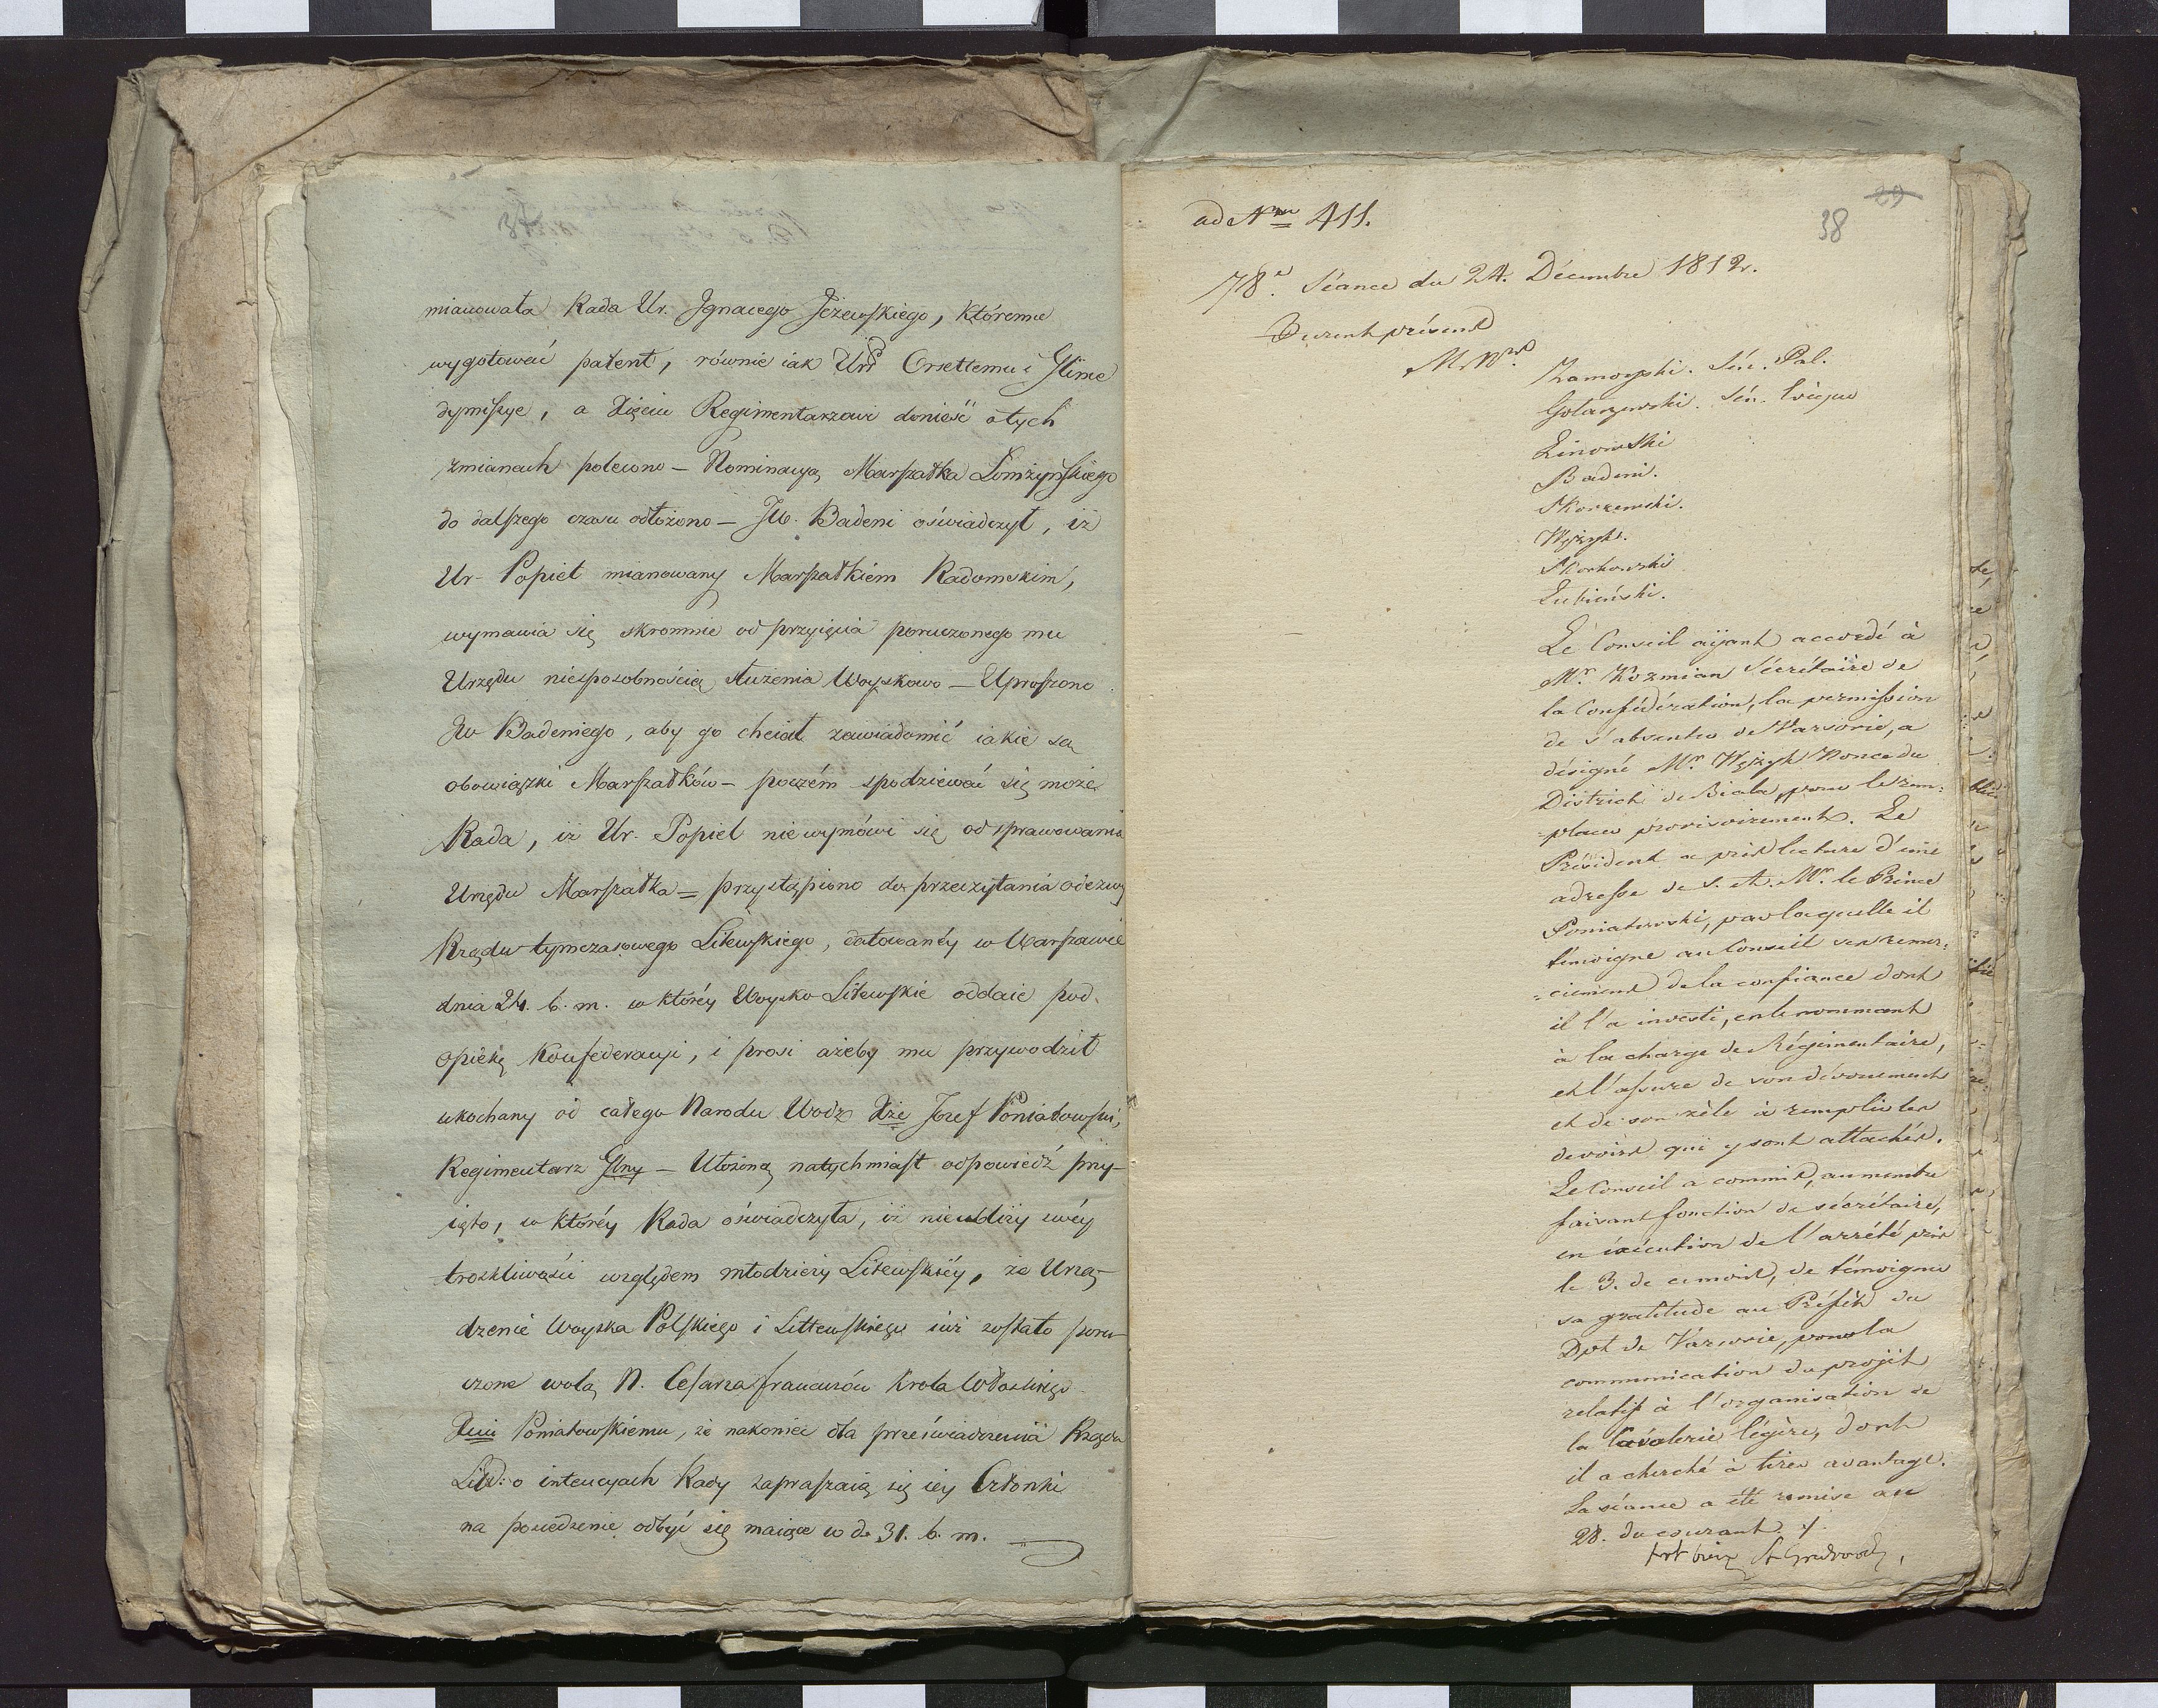 mianowała Rada Ur. Ignacego Jeżewskiego, któremu
wygotować patent, równie iak Orsettemu i Glince
dymissye, a Xięciu Regimentarzowi donieść o tych
zmianach polecono — Nominacyą Marszałka Łomżyńskiego
do dalszego czasu odłożono — JW. Badeni oświadczył, iż
Ur. Popiel mianowany Marszałkiem Radomskim,
wymawia się skromnie od przyięcia poruczonego mu
Urzędu niesposobnością służenia Woyskowo — Uproszono
JW Badeniego, aby go chciał zawiadomić iakie są
obowiązki Marszałków — poczém spodziewać się może
Rada, iż Ur. Popiel nie wymówi się od sprawowania
Urzędu Marszałka — przystąpiono do przeczytania odezwy
Rządu tymczasowego Litewskiego, datowanéy w Warszawie
dnia 24. b. m. w któréy Woysko Litewskie oddaie pod
opiekę Konfederacyi, i prosi ażeby mu przywodził
ukochany od całego Narodu Wodz Xże Jozef Poniatowski,
Regimentarz Glny — Ułożoną natychmiast odpowiedź przy-
ięto, w któréy Rada oświadczyła, iż nie ubliży swéy
troskliwości względem młodzieży Litewskiéy, że Urzą-
dzenie Woyska Polskiego i Littewskiego iuż zostało poru-
czone wolą N. Cesarza francuzów Krola Włoskiego
Xciu Poniatowskiemu, że nakoniec dla przeświadczenia Rządu
Litt: o intencyach Rady zapraszaią się iéy Członki
na posiedzenie odbyć się maiące w d. 31. b. m.
29
38
ad Nrum 411.
78e. Séance du 24. Décembre 1812.
Furent présents
Mrs.
Zamoyski. Sén. Pal.
Gołaszewski. Sén. Evêque
Linowski
Badeni.
Skorzewski.
Wężyk.
Skorkowski
Łubieński.
Le Conseil aÿant accordé à
Mr. Kozmian Sécrétaire de
la Confédération, la permission
de s'absenter de Varsovie, a
désigné Mr. Wężyk Nonce du
District de Biała, pour le rem-
=placer provisoirement. Le
Président a pris lecture d'une
adresse de S. A. Mr. le Prince
Poniatowski, par laquelle il
témoigne au Conseil ses remer=
=ciemens de la confiance dont
il l'a investi, en le nommant
à la charge de Régimentaire,
et l'assure de son dévouement
et de son zèle à remplir les
devoirs qui y sont attachés.
Le Conseil a commis, au membre
faisant fonction de sécrétaire,
en éxécution de l'arrêté pris
le 3. de ce mois, de témoigner
sa gratitude au Préfèt du
Dpt de Varsovie, pour la
communication du projèt
relatif à l'organisation de
la Cavalerie légère, dont
il a cherché à tirer avantage.
La séance a été remise au
28. du courant.